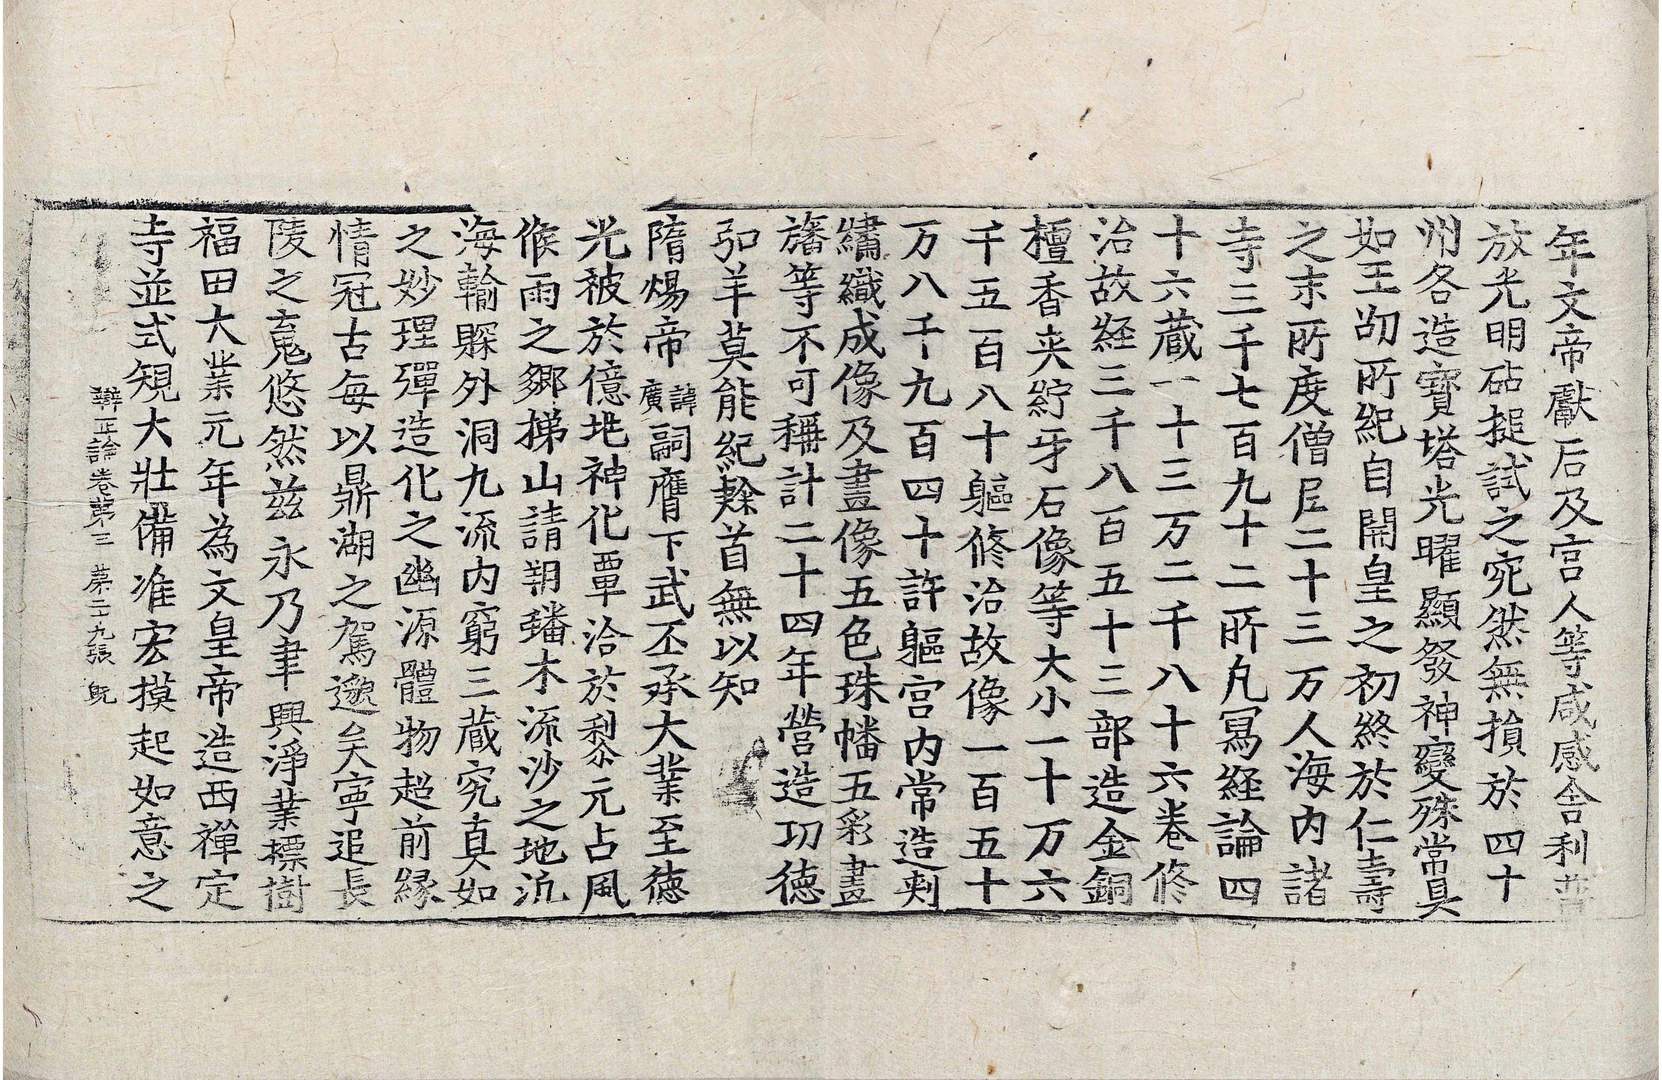 年文帝獻后及宮人等咸感舍利普
放光明砧搥試之宛然無損於四十
州各造寶塔光曜顯發神變殊常具
如王劭所紀自開皇之初終於仁壽
之末所度僧尼二十三万人海內諸
寺三千七百九十二所凡冩經論四
十六藏一十三万二千八十六卷修
治故經三千八百五十三部造金銅
檀香夾紵牙石像等大小一十万六
千五百八十軀修治故像一百五十
万八千九百四十許軀宮內常造刺
繡織成像及畫像五色珠幡五彩畫
旛等不可稱計二十四年營造功德
弘羊莫能紀隸首無以知
隋煬帝諱廣嗣膺下武丕承大業至德
光被於億兆神化覃洽於黎元占風
候雨之鄉梯山請朔蟠木流沙之地沉
海輸賝外洞九流內窮三藏究真如
之妙理彈造化之幽源體物超前緣
情冠古每以鼎湖之駕邈矣寧追長
陵之䰟悠然兹永乃聿興淨業標樹
福田大業元年為文皇帝造西禪定
寺並式規大壯備准宏摸起如意之
辯正論卷第三　第二十九張　旣